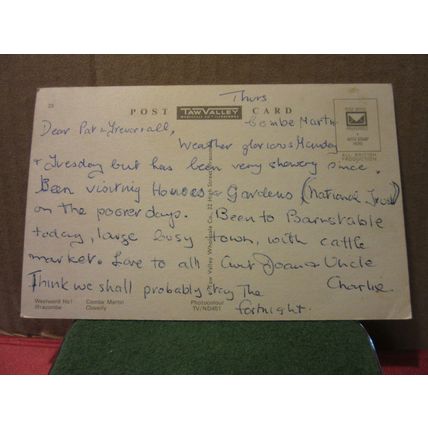 23
POST TAW VALLEY CARD
Thurs
Combe Martin
Dear Pat & Trevor & all,
Weather glorious Monday
& Tuesday but has been very showery since.
Been visiting Houses & Gardens (National Trust)
on the poorer days. Been to Barnstable
today, large busy town, with cattle
market. Love to all Aunt Joan & Uncle
Charlie.
Think we shall probably stay the
fortnight.
Westward Ho! Combe Martin
Ilfracombe Clovelly
Photocolour
TV/ND451
ALL BRITISH
PRODUCTION